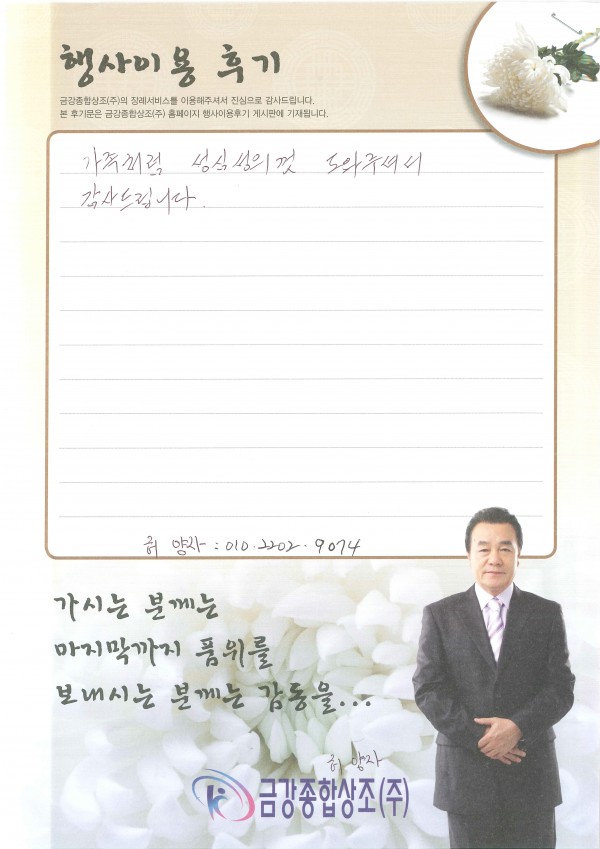 행사이용 후기
금강종합상조(주)의 장례서비스를 이용해주셔서 진심으로 감사드립니다.
본 후기문은 금강종합상조(주) 홈페이지 행사이용후기 게시판에 기재됩니다.
가족처럼 성심성의껏 도와주셔서
감사드립니다.
허 양자 : 010.2202.9074
가시는 분께는
마지막까지 품위를
보내시는 분께는 감동을...
허 양자
금강종합상조(주)